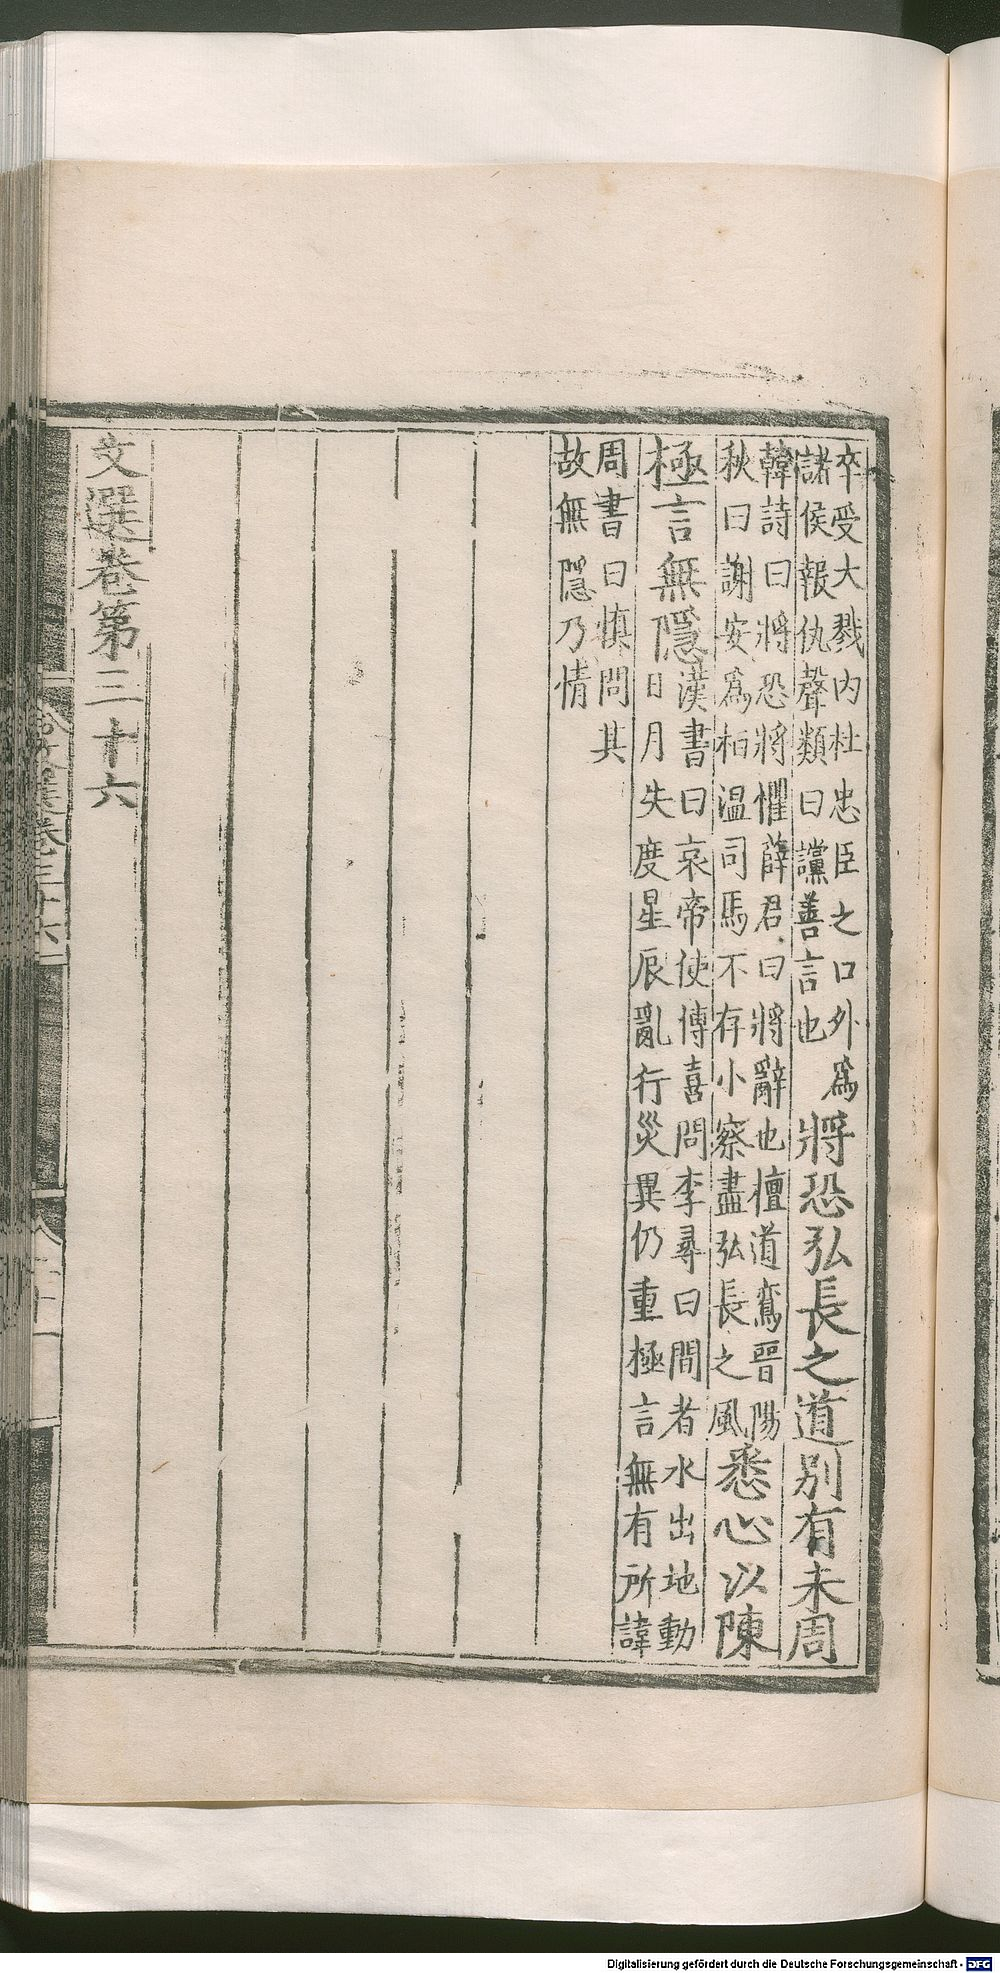 卒受大戮内杜忠臣之口外爲
諸侯報仇聲類曰讜善言也
將恐弘長之道別有未周
韓詩曰將恐將懼薛君曰將辭也檀道鸞晉陽
秋曰謝安爲桓温司馬不存小察盡弘長之風
悉心以陳
極言無隱
漢書曰哀帝使傅喜問李尋曰間者水出地動
日月失度星辰亂行災異仍重極言無有所諱
周書曰慎問其
故無隱乃情
文選卷第三十六
Digitalisierung gefördert durch die Deutsche Forschungsgemeinschaft - DFG